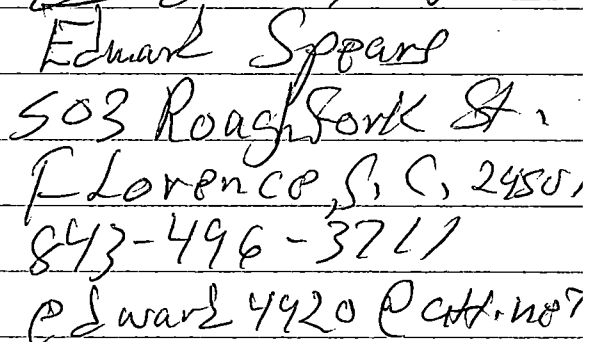 Edward Spears
503 Roughfork St.
Florence, S.C, 29501
843-496-3711
edward4920@att.net